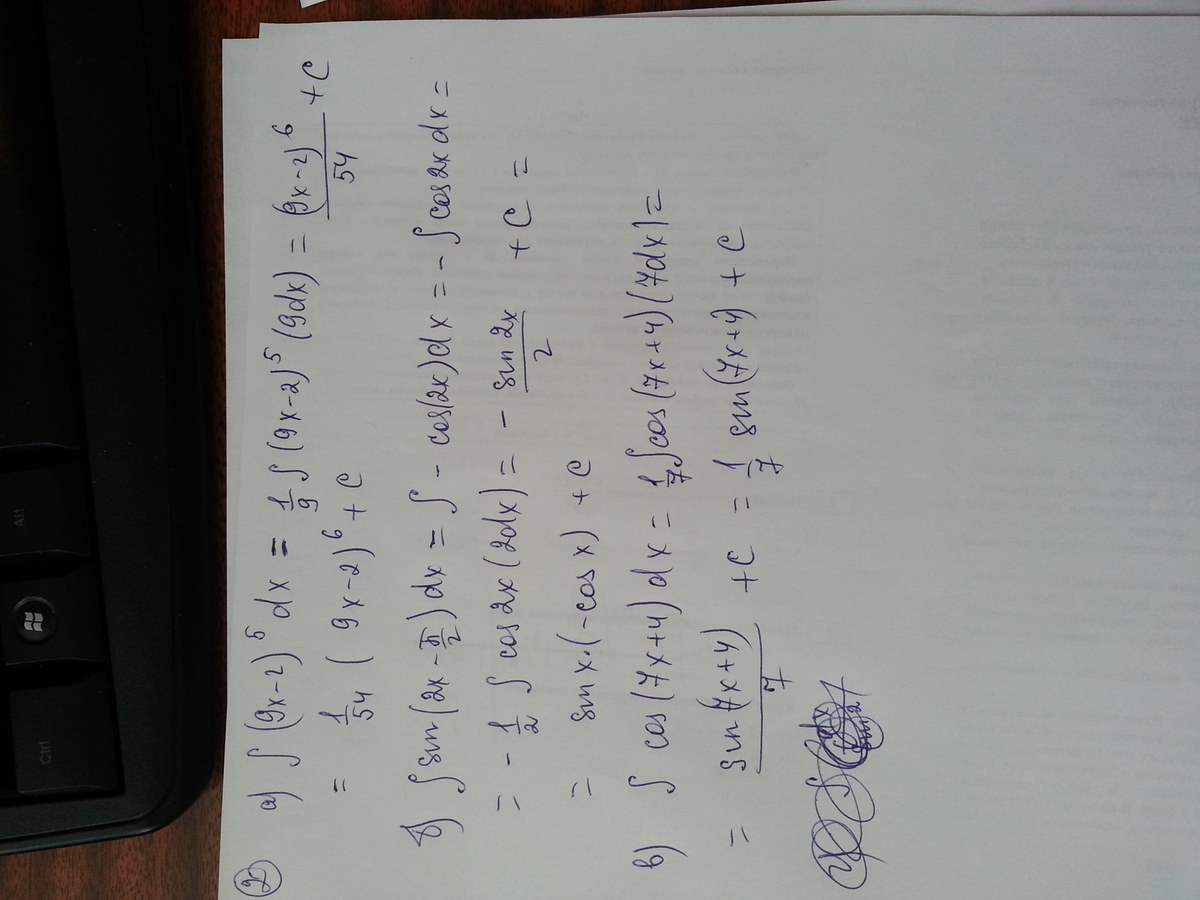 2
а) ∫ (9x-2)^5 dx = 1/9 ∫ (9x-2)^5 (9dx) = (9x-2)^6/54 + C
= 1/54 (9x-2)^6 + C
б) ∫ sin(2x - π/2) dx = ∫ - cos(2x) dx = - ∫ cos2x dx =
= - 1/2 ∫ cos2x (2dx) = - sin2x/2 + C =
= sin x·(-cos x) + C
в) ∫ cos(7x+4) dx = 1/7 ∫ cos(7x+4)(7dx) =
= sin(7x+4)/7 + C = 1/7 sin(7x+4) + C
Alt
Ctrl